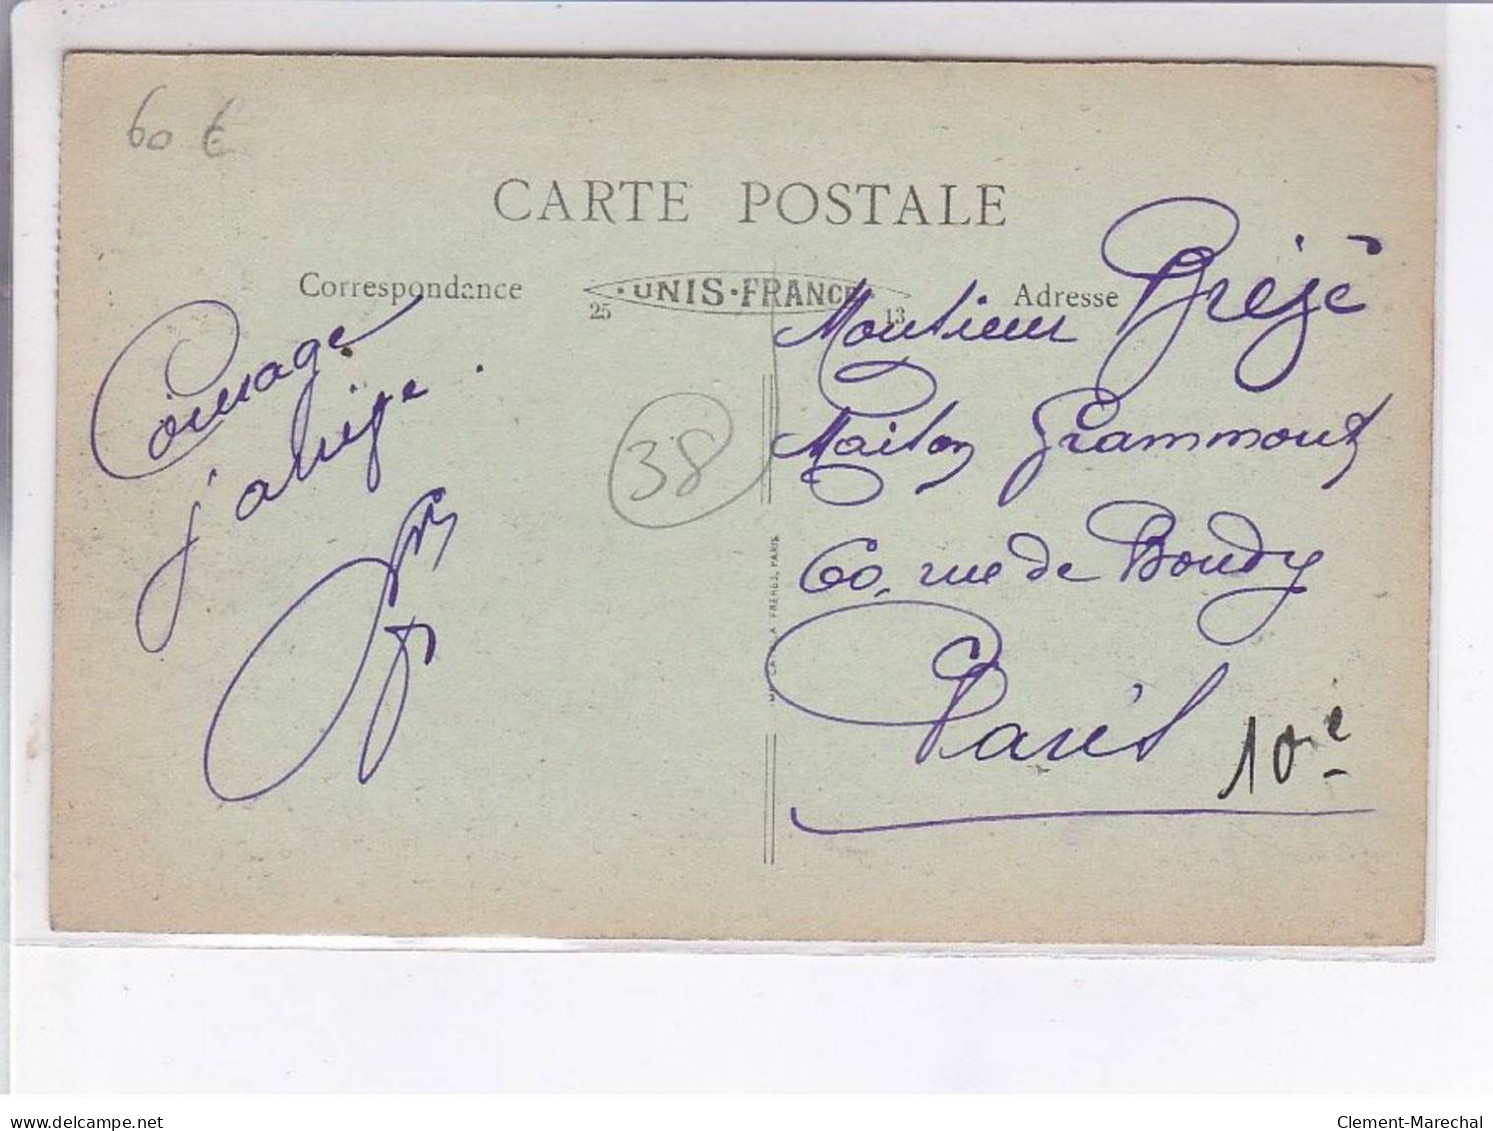 60 €
CARTE POSTALE
Correspondance
·UNIS·FRANCE·
25
13
Adresse
Courage
j'arrive.
38
Monsieur Brézé
Maison Grammont
60, rue de Bondy
Paris
10è
FRÈRES, PARIS
delcampe.net
Clement-Marechal